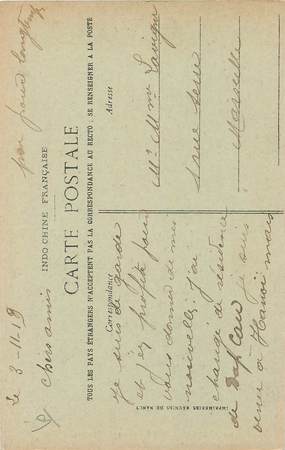 pas pour longtemps
INDO-CHINE FRANÇAISE
CARTE POSTALE
TOUS LES PAYS ÉTRANGERS N'ACCEPTENT PAS LA CORRESPONDANCE AU RECTO : SE RENSEIGNER A LA POSTE
Correspondance
Adresse
le 3-11-19
Chers amis
je suis de garde
et j'ai profité pour
vous donner de mes
nouvelles j'ai
changé de résidence
de Dap Cau je suis
venu à Hanoï mais
Mr Mme Lavigne
Marseille
IMPRIMERIES RÉUNIES DE NANCY